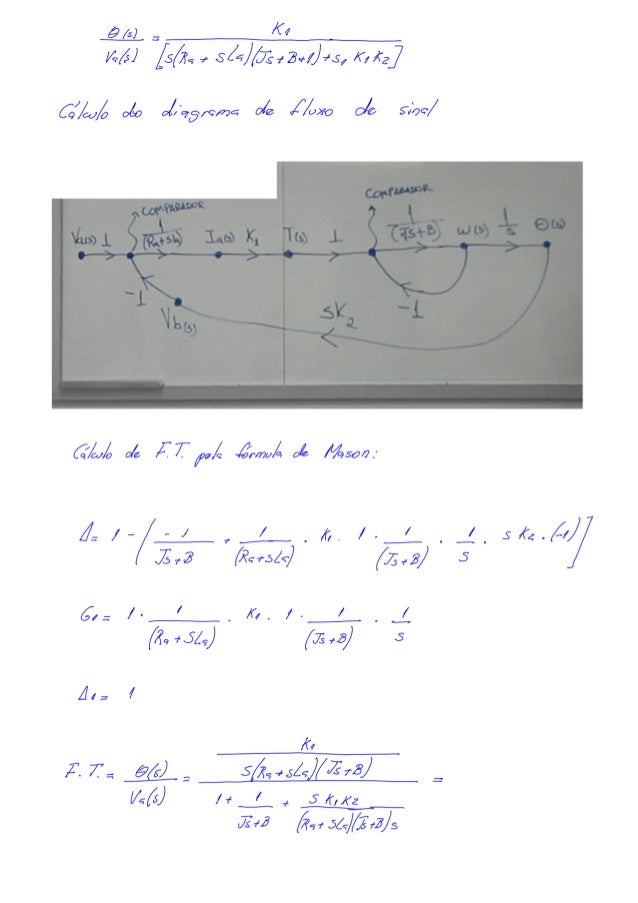 θ(s)/Va(s) = K1/[s(Ra + sLa)(Js+B+1)+s, K1K2]
Cálculo do diagrama de fluxo de sinal
COMPARADOR
COMPARADOR
Va(s) 1 1/(Ra+sLa) Ia(s) K1 T(s) 1 1/(Js+B) ω(s) 1/s Θ(s)
-1
Vb(s)
sK2
-1
Cálculo de F.T. pela fórmula de Mason:
Δ= 1 - [-1/Js+B + 1/(Ra+sLa) . K1 . 1 . 1/(Js+B) . 1/s . s K2 . (-1)]
G1 = 1 . 1/(Ra + SLa) . K1 . 1 . 1/(Js+B) . 1/s
Δ1 = 1
F.T. = θ(s)/Va(s) = K1/s(Ra+sLa)(Js+B) / 1 + 1/Js+B + S K1K2/(Ra+SLa)(Js+B)s =